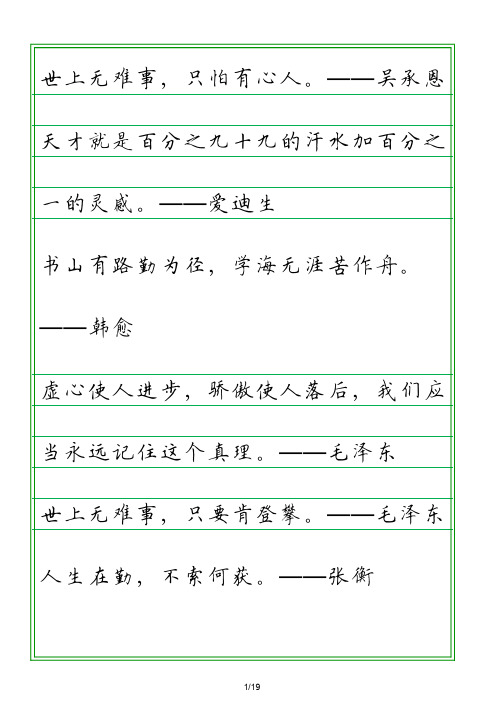 世上无难事，只怕有心人。——吴承恩
天才就是百分之九十九的汗水加百分之
一的灵感。——爱迪生
书山有路勤为径，学海无涯苦作舟。
——韩愈
虚心使人进步，骄傲使人落后，我们应
当永远记住这个真理。——毛泽东
世上无难事，只要肯登攀。——毛泽东
人生在勤，不索何获。——张衡
1/19